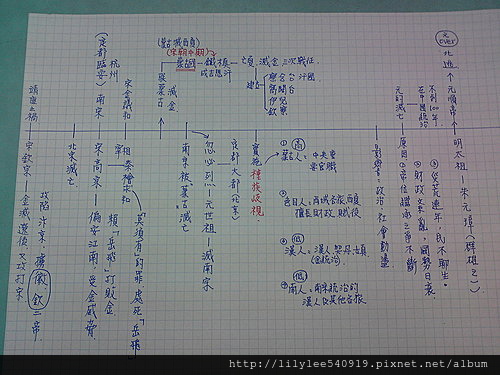 靖康之禍
宋欽宗
金滅遼後又攻打宋
攻陷汴京,擄徽、欽二帝。
北宋滅亡
(定都臨安)南宋
杭州
宋高宗
偏安江南,受金威脅
宋金議和
宰相
秦檜求和
賴「岳飛」打敗金
「莫須有」的罪處死「岳飛」
聯蒙古
滅金
南宋被「蒙古」滅亡
(蒙古滅西夏)
(宋朝中期)
蒙古國
鐵木真
成吉思汗
亡夏、滅金、三次戰征
建立
窩闊台
察合台
伊兒
欽察
汗國
忽必列
元世祖
滅南宋
京都大都(北京)
實施種族歧視
①蒙古人:中央要
高
②色目人:西域各族西
擅長財政、賦役
③漢人:漢人、契丹、女真
(金統治)
低
④南人:南宋統治的
漢人及其他各族
低
影響:政治、社會動盪
元的滅亡
不到100年
在中國統治
原因
①帝位繼承之爭不斷
②財政紊亂,國勢日衰。
③災荒連年,民不聊生。
元over
北逃
元順帝
明太祖
朱元璋
http://lilylee540919.pixnet.net/album